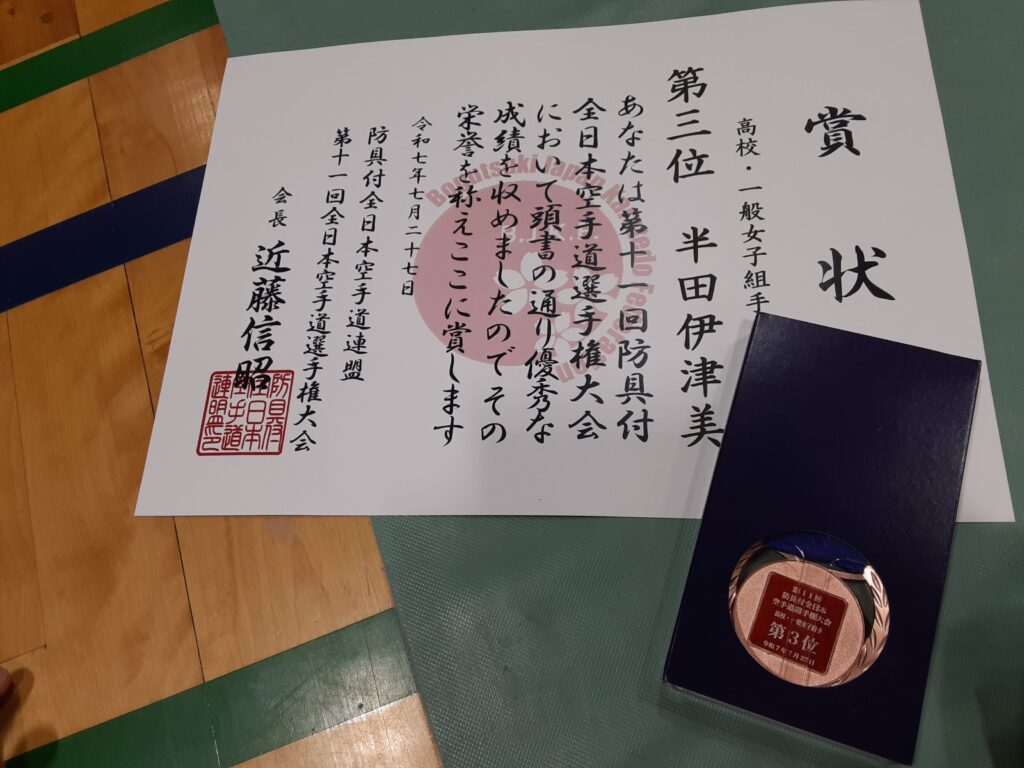 賞状
高校・一般女子組手
第三位 半田伊津美
あなたは第十一回防具付
全日本空手道選手権大会
において頭書の通り優秀な
成績を収めましたのでその
栄誉を称えここに賞します
令和七年七月二十七日
防具付全日本空手道連盟
第十一回全日本空手道選手権大会
会長 近藤信昭
第11回
防具付全日本
空手道選手権大会
高校・一般女子組手
第3位
令和7年7月27日